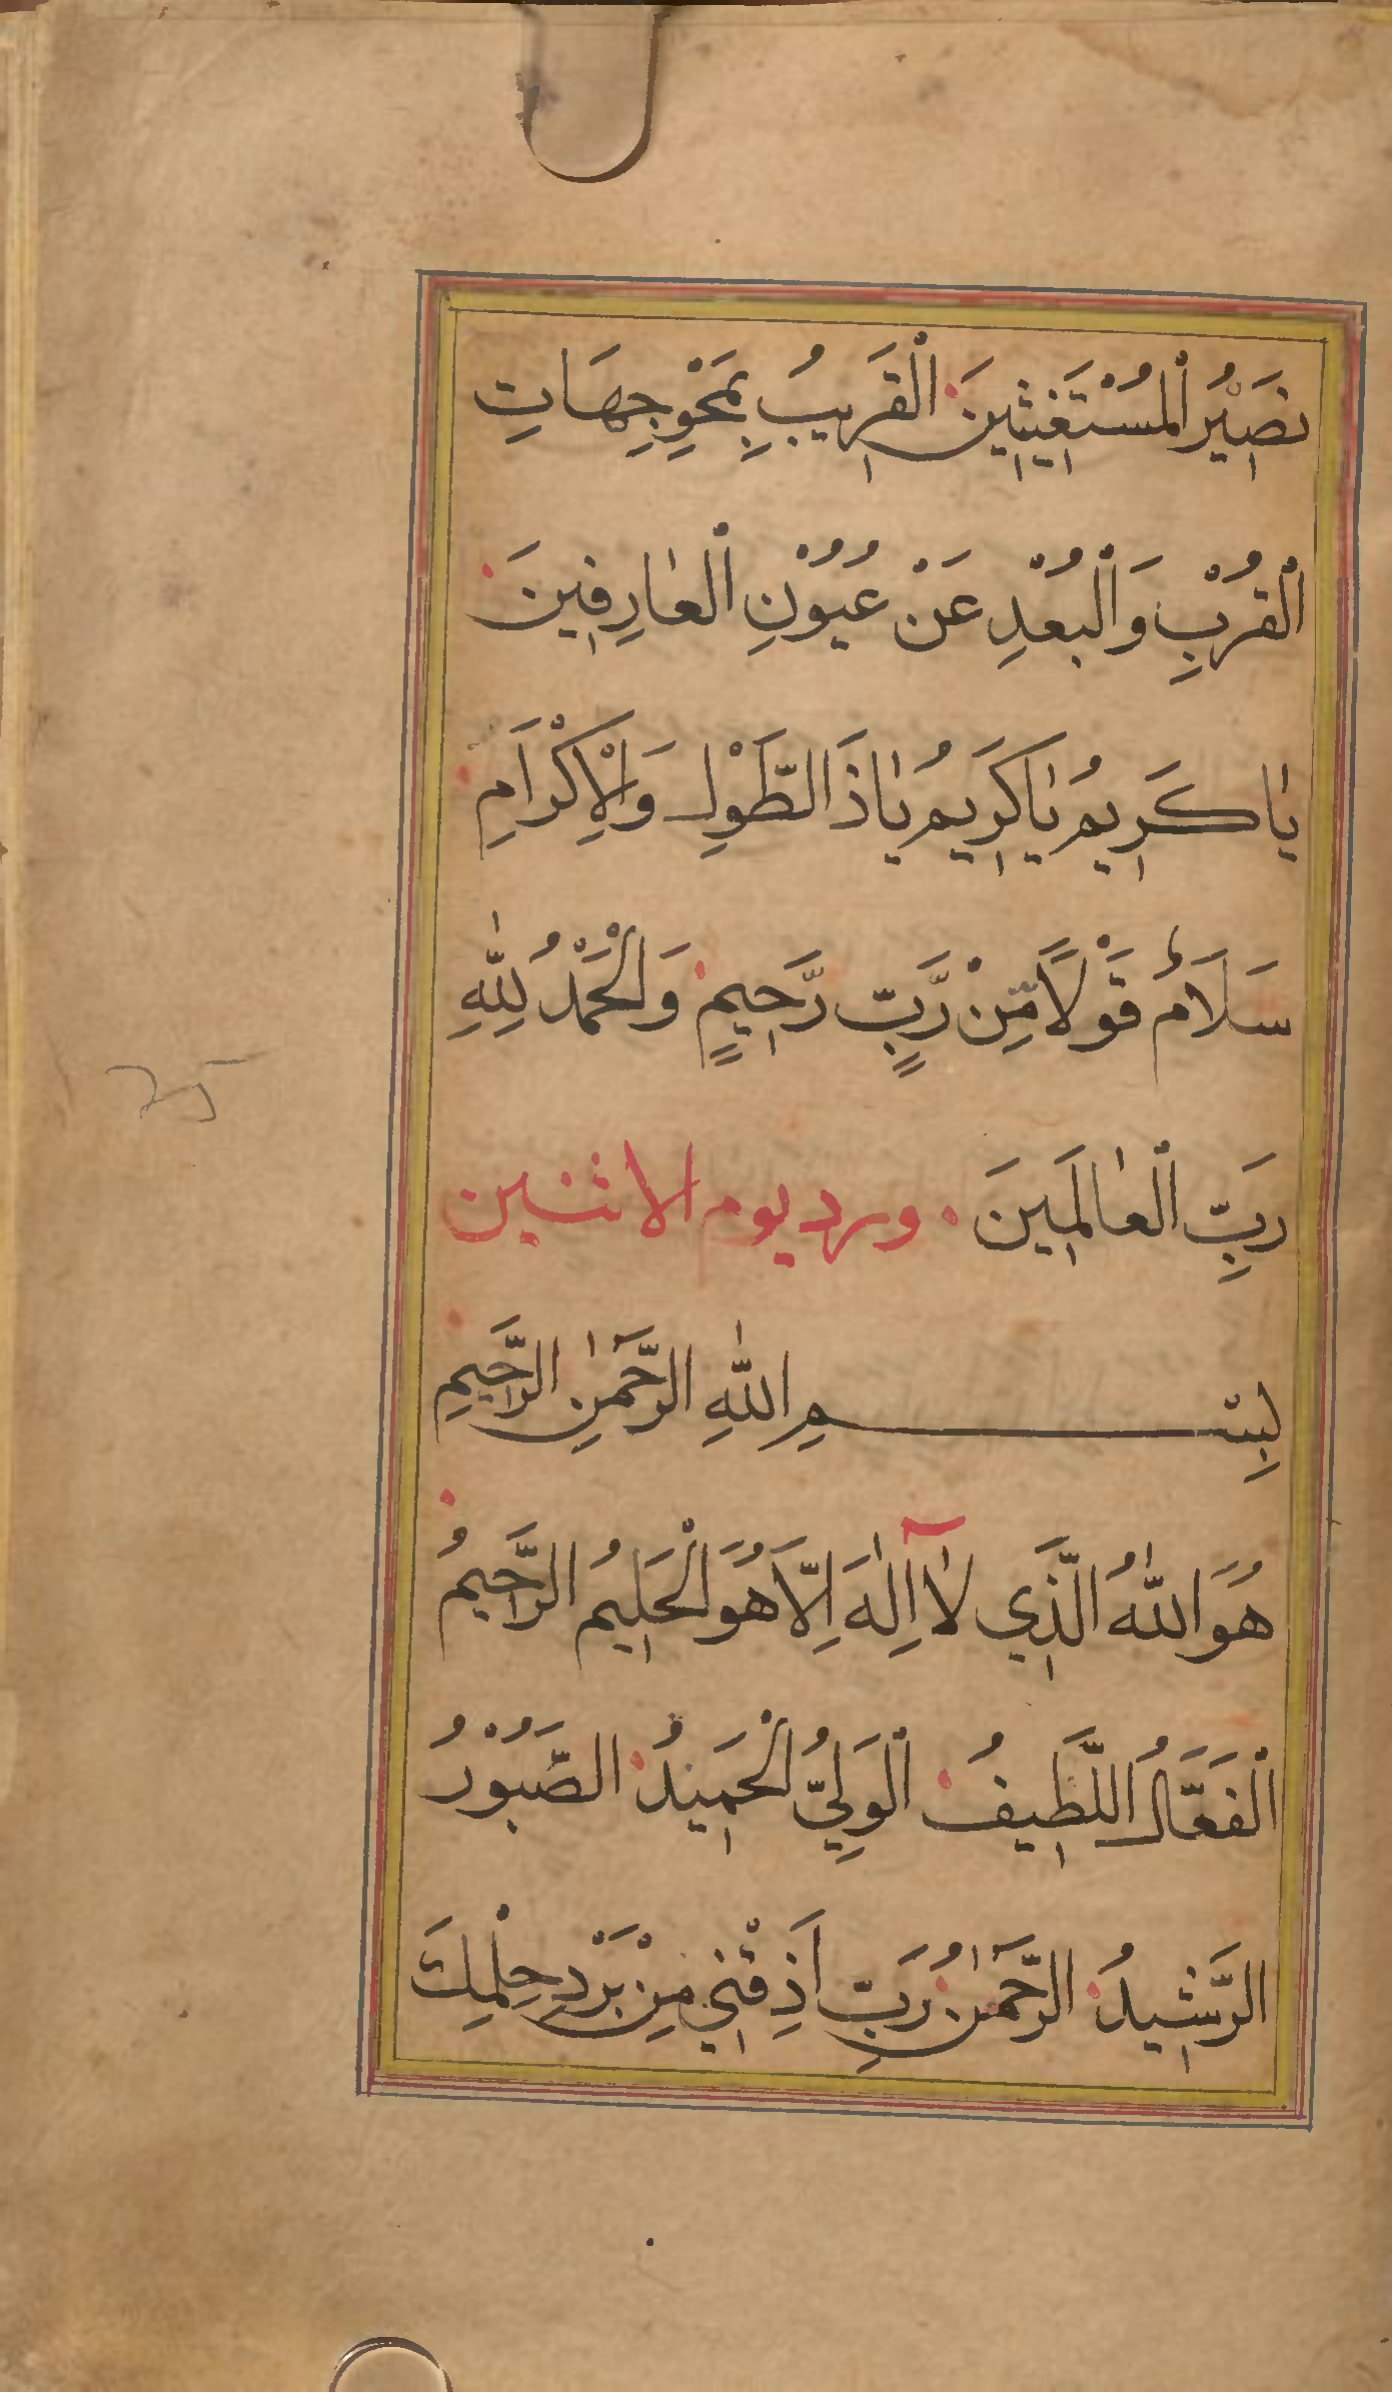 نَصِيْرُ الْمُسْتَغِيثِينَ الْقَرِيبُ بِمَحْوِ جِهَاتِ
الْقُرْبِ وَالْبُعْدِ عَنْ عُيُوْنِ الْعَارِفِينَ
يَا كَرِيمُ يَا كَرِيمُ يَا ذَا الطَّوْلِ وَالْاِكْرَامِ
سَلَامٌ قَوْلًا مِّنْ رَّبٍّ رَّحِيمٍ وَالْحَمْدُ لِلّٰهِ
رَبِّ الْعَالَمِينَ ورد يوم الاثنين
بِسْمِ اللّٰهِ الرَّحْمٰنِ الرَّحِيمِ
هُوَ اللّٰهُ الَّذِي لَآ اِلٰهَ اِلَّا هُوَ الْحَلِيمُ الرَّحِيمُ
الْفَعَّالُ اللَّطِيفُ الْوَلِيُّ الْحَمِيدُ الصَّبُوْرُ
الرَّشِيدُ الرَّحْمٰنُ رَبِّ اَذِقْنِي مِنْ بَرْدِ حِلْمِكَ